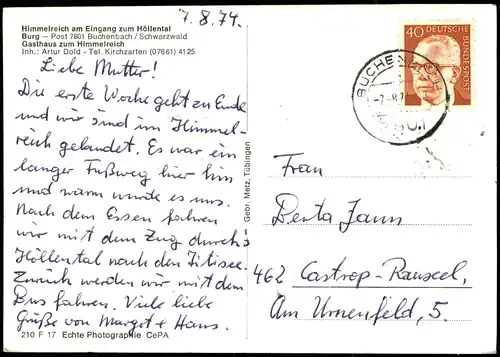 7.8.74.
Himmelreich am Eingang zum Höllental
Burg – Post 7801 Buchenbach / Schwarzwald
Gasthaus zum Himmelreich
Inh.: Artur Dold - Tel. Kirchzarten (07661) 4125
Liebe Mutter!
Die erste Woche geht zu Ende
und wir sind im Himmel-
reich gelandet. Es war ein
langer Fußweg hier hin
und warm wurde es uns.
Nach dem Essen fahren
wir mit dem Zug durchs
Höllental nach den Titisee.
Zurück werden wir mit dem
Bus fahren. Viele liebe
Grüße von Margot + Hans.
210 F 17 Echte Photographie CePA
Gebr. Metz, Tübingen
40 DEUTSCHE
BUNDESPOST
BUCHENBACH
-7.-8.7
Frau
Berta Jann
462 Castrop-Rauxel,
Am Urnenfeld, 5.